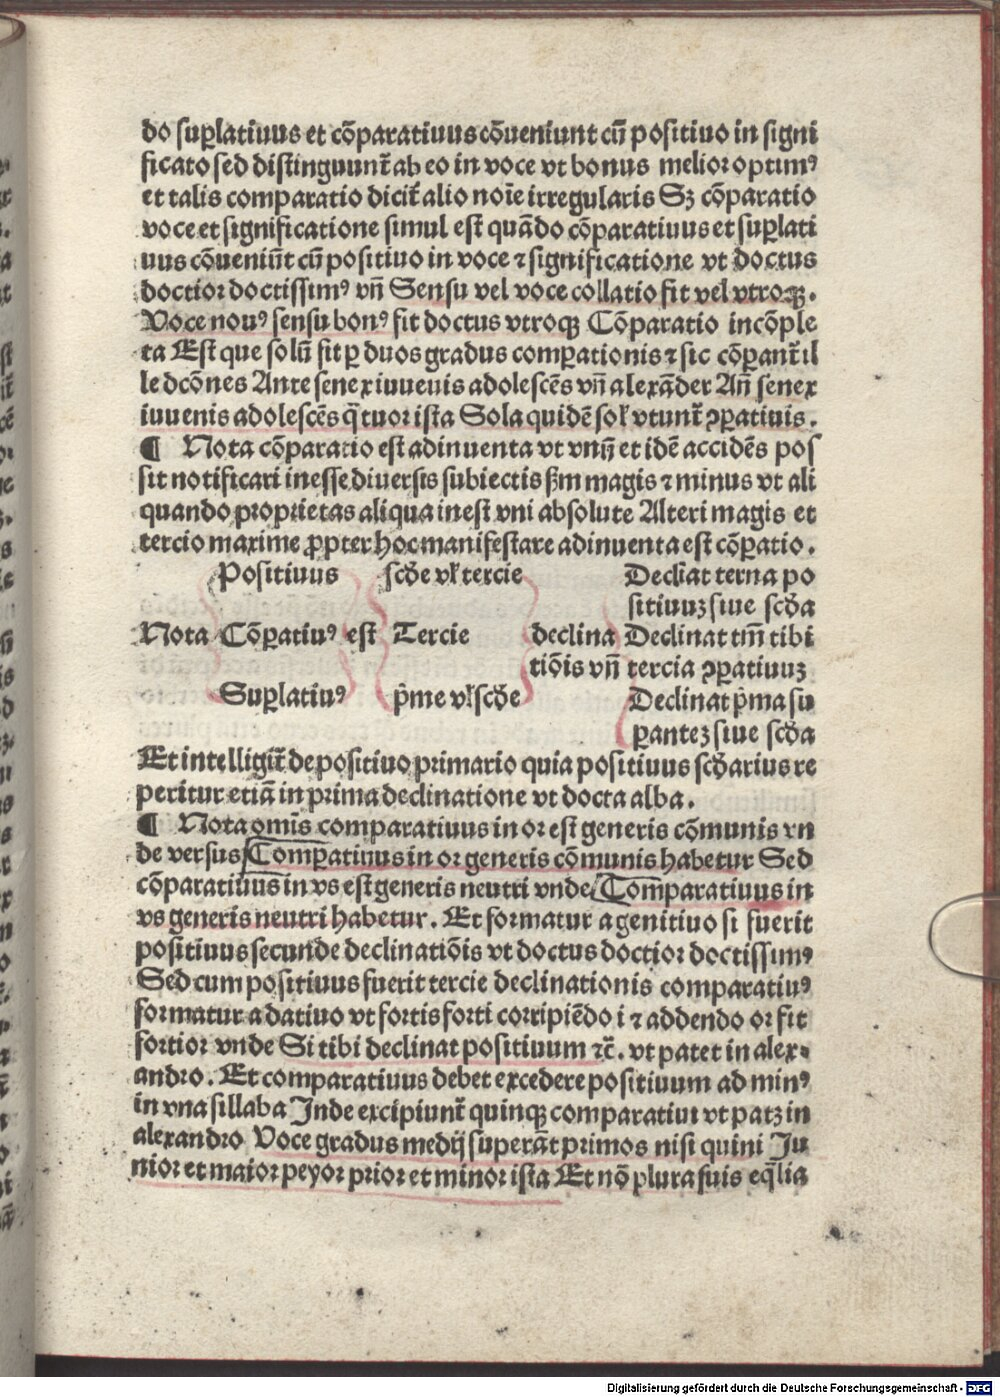 do suꝑlatiuus et cōparatiuus cōueniunt cū positiuo in signi
ficato sed distinguunt̄ ab eo in voce vt bonus melior optimꝰ
et talis comparatio dicit̄ alio noīe irregularis Sꝫ cōparatio
voce et significatione simul est quādo cōparatiuus et suꝑlati
uus cōueniūt cū positiuo in voce ⁊ significatione vt doctus
doctior doctissimꝰ vn̄ Sensu vel voce collatio fit vel vtroqꝫ.
Voce nouꝰ sensu bonꝰ fit doctus vtroqꝫ Cōparatio incōple
ta Est que solū fit ꝑ duos gradus comꝑationis ⁊ sic cōꝑant̄ il
le dcōnes Ante senex iuueuis adolescēs vn̄ alexāder An̄ senex
iuuenis adolescēs q̄tuor ista Sola quidē solꝉ vtunt̄ ꝯꝑatiuis.
¶ Nota cōparatio est adinuenta vt vnū et idē accidēs pos
sit notificari inesse diuersis subiectis ẜm magis ⁊ minus vt ali
quando proprietas aliqua inest vni absolute Alteri magis et
tercio maxime ꝓpter hoc manifestare adinuenta est cōꝑatio.
Positiuus scd̄e vꝉ tercie Decliat terna po
sitiuuꝫ siue scd̄a
Nota Cōꝑatiuꝰ est Tercie declina Declinat tm̄ tibi
tiōis vn̄ tercia ꝯꝑatiuuꝫ
Suꝑlatiuꝰ p̄me vꝉ scd̄e Declinat p̄ma su
ꝑanteꝫ siue scd̄a
Et intelligit̄ de positiuo primario quia positiuus scd̄arius re
peritur etiā in prima declinatione vt docta alba.
¶ Nota omīs comparatiuus in or est generis cōmunis vn
de versus Comꝑatiuus in or generis cōmunis habetur Sed
cōparatiuus in vs est generis neutri vnde Comparatiuus in
vs generis neutri habetur. Et formatur a genitiuo si fuerit
positiuus secunde declinatiōis vt doctus doctior doctissimꝰ
Sed cum positiuus fuerit tercie declinationis comparatiuꝰ
formatur a datiuo vt fortis forti corripiēdo i ⁊ addendo or fit
fortior vnde Si tibi declinat positiuum ⁊c̄. vt patet in alex⸗
andro. Et comparatiuus debet excedere positiuum ad minꝰ
in vna sillaba Inde excipiunt̄ quinqꝫ comparatiui vt patꝫ in
alexandro Voce gradus medij superāt primos nisi quini Iu
nior et maior peyor prior et minor ista Et nō plura suis eq̄lia
Digitalisierung gefördert durch die Deutsche Forschungsgemeinschaft - DFG